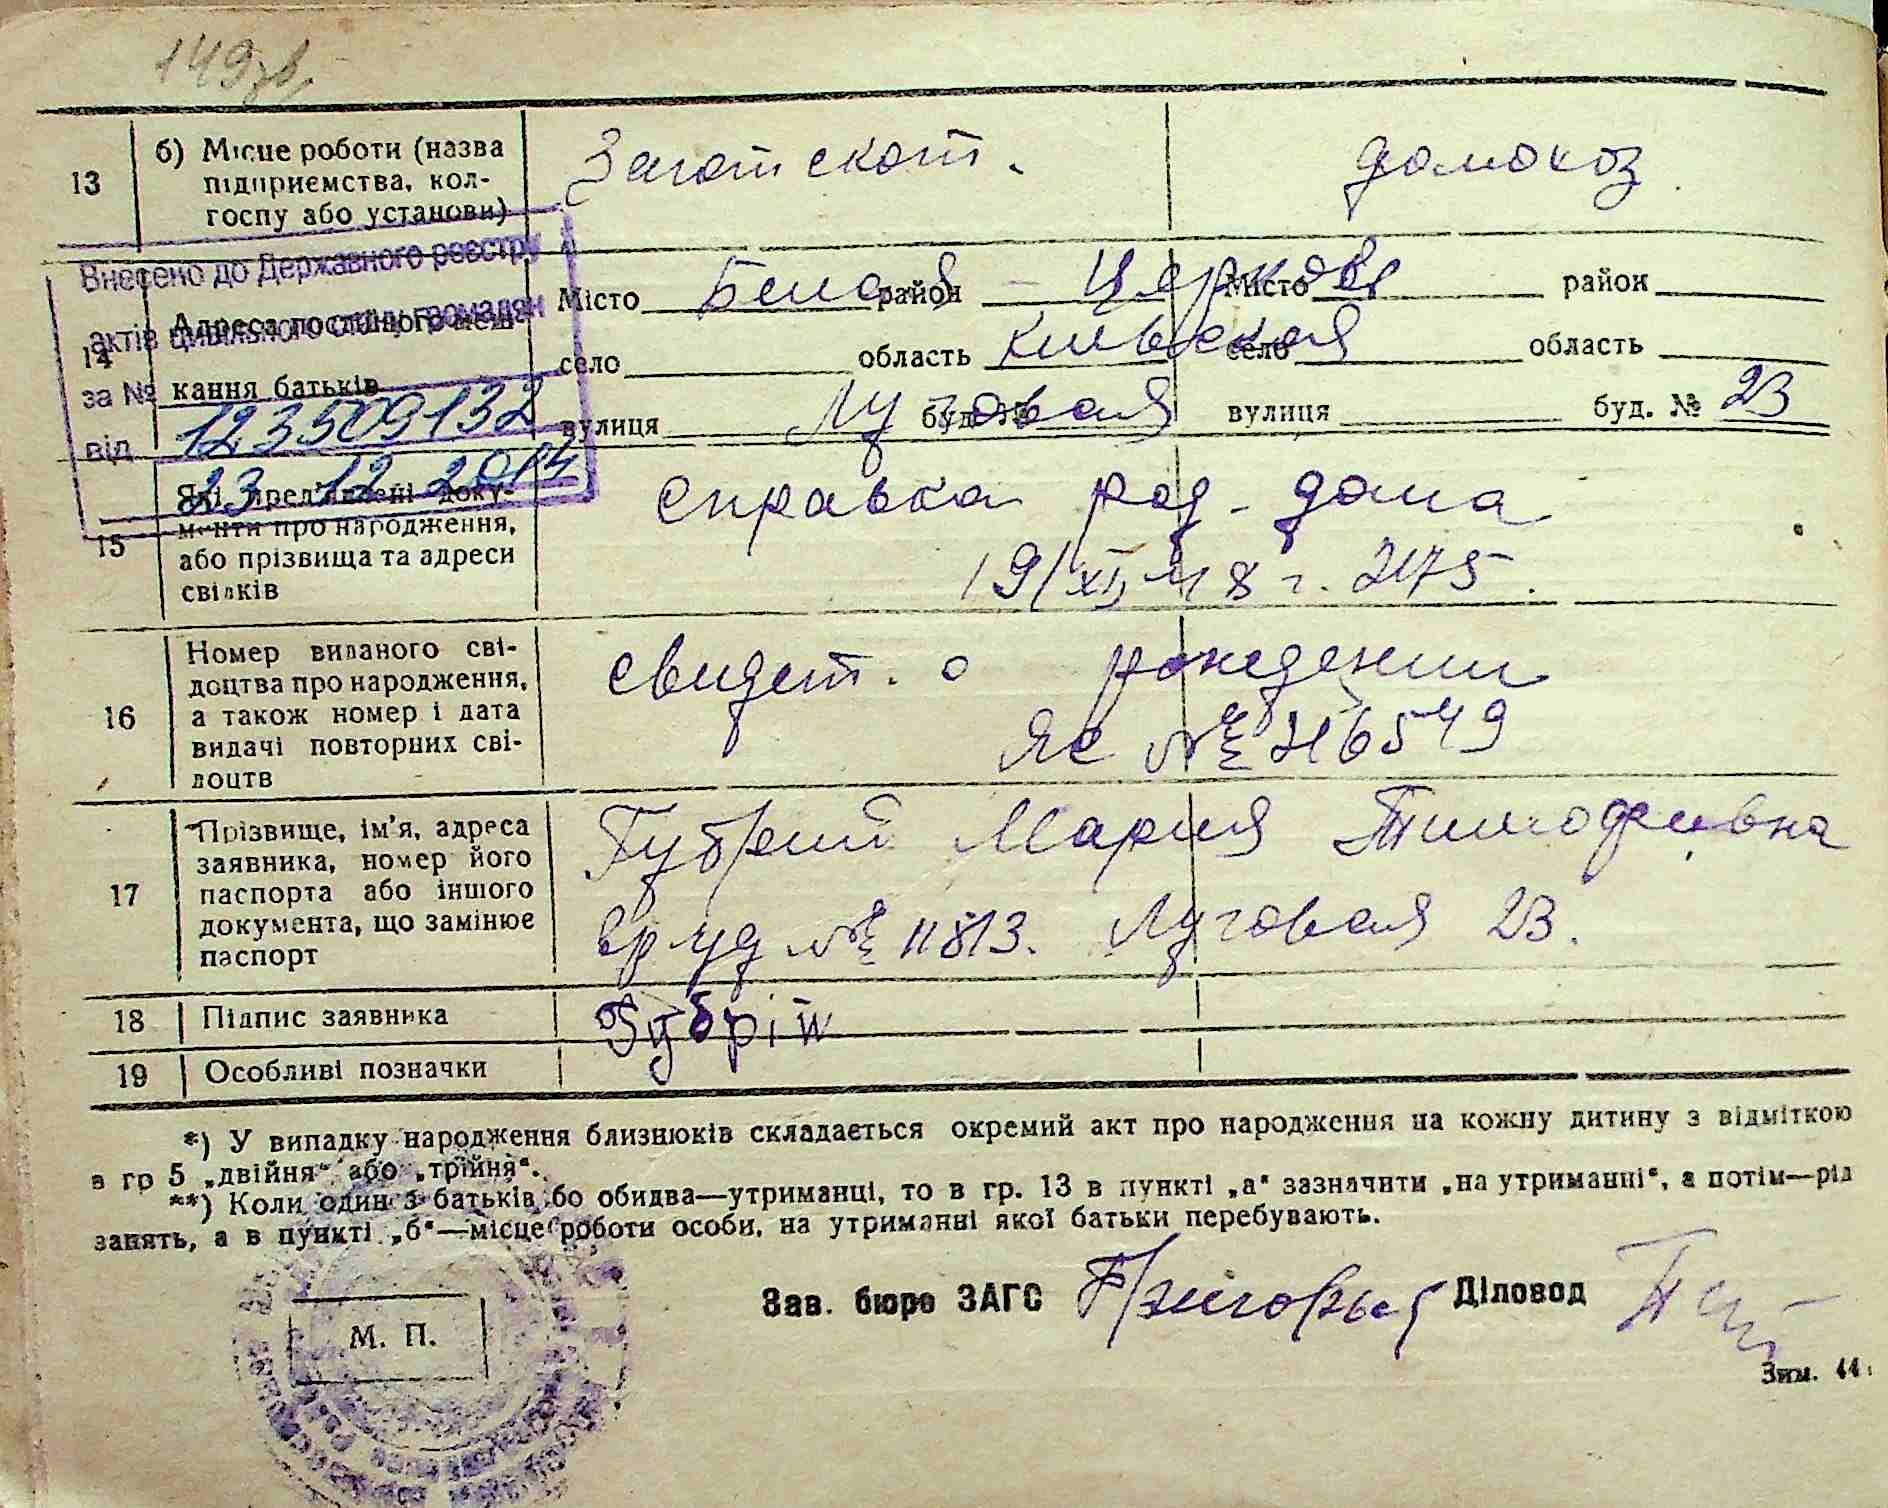 149зв.
13 б) Місце роботи (назва підприємства, кол-
госпу або установи)
Заготскот. домохоз.
Внесено до Державного реєстру
актів цивільного стану громадян
за № 123509132
від 23 12 2014
14 Адреса постійного меш-
кання батьків
Місто Белая район - Церковь Місто район
село область Киевская село область
вулиця Луговая буд. № вулиця буд. № 23
15 Які пред'явлені доку-
менти про народження,
або прізвища та адреси
свідків
справка род. дома
19/XII 48 г. 2175.
16 Номер виданого сві-
доцтва про народження,
а також номер і дата
видачі повторних сві-
доцтв
свидет. о рождении
ЯС № 216549
17 Прізвище, ім'я, адреса
заявника, номер його
паспорта або іншого
документа, що замінює
паспорт
Губрий Мария Тимофеивна
вр уд № 11813. Луговая 23.
18 Підпис заявника Губрій
19 Особливі позначки
*) У випадку народження близнюків складається окремий акт про народження на кожну дитину з відміткою
в гр 5 „двійня“ або „трійня“.
**) Коли один з батьків бо обидва—утриманці, то в гр. 13 в пункті „а“ зазначити „на утриманні“, а потім—рід
занять, а в пункті „б“—місце роботи особи, на утриманні якої батьки перебувають.
Зав. бюро ЗАГС Діловод
М. П.
Зим. 44